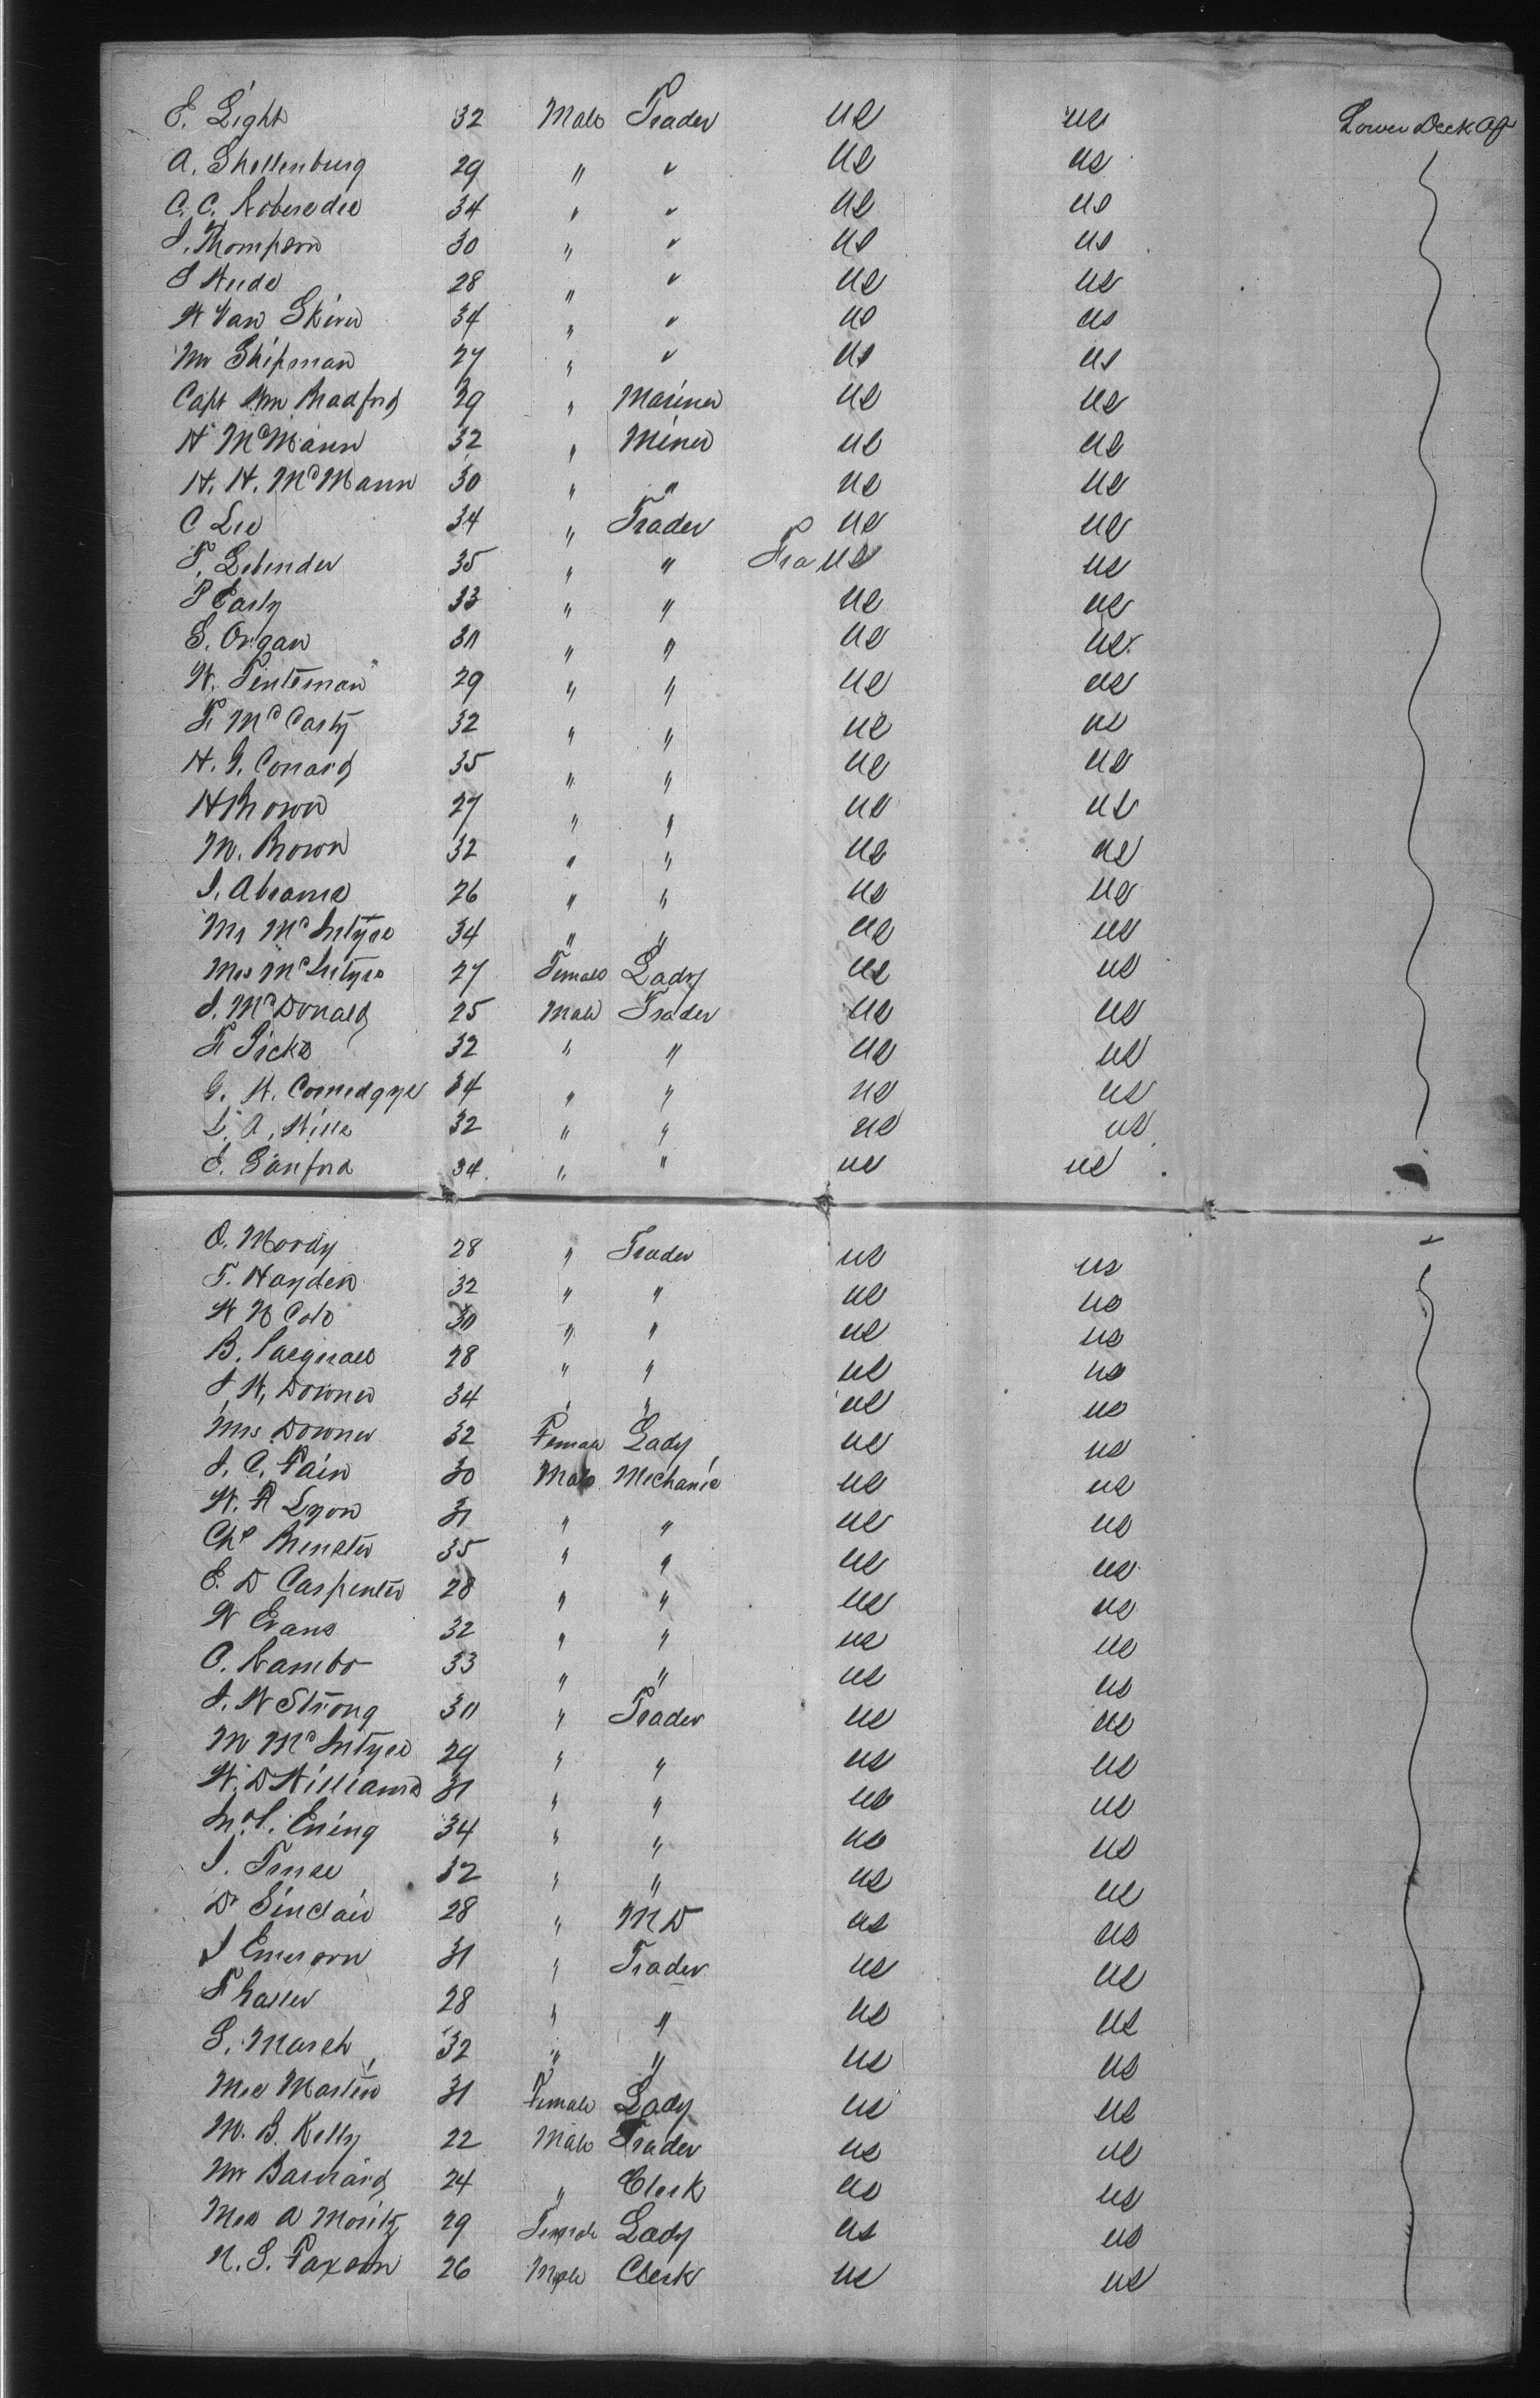 E. Light 32 Male Trader US US Lower Deck Aft
A. Shellenburg 29 " " US US
C. C. 34 " " US US
J. Thompson 30 " " US US
28 " " US US
W Van Skiver 34 " " US US
Mr Shipman 27 " " US US
Capt Wm Bradford 29 " Mariner US US
H McMann 32 " Miner US US
H. H. McMann 30 " " US US
C Lee 34 " Trader US US
F. 35 " " US US
P Early 33 " " US US
S. Organ 30 " " US US
W. Tenteman 29 " " US US
F. McCarty 32 " " US US
H. G. Conard 35 " " US US
H Brown 27 " " US US
M. Brown 32 " " US US
I. Abrams 26 " " US US
Mr McIntyre 34 " " US US
Mrs McIntyre 27 Female Lady US US
J. McDonald 25 Male Trader US US
F. Hicks 32 " " US US
G. W. Comedgys 34 " " US US
L. A. Wills 32 " " US US
E. Sanford 34 " " US US
O. Moody 28 " Trader US US
T. Hayden 32 " " US US
W H Cole 30 " " US US
B. 28 " " US US
J. W. Downer 34 " " US US
Mrs Downer 32 Female Lady US US
J. C. Fain 30 Male Mechanic US US
W. R Lyon 31 " " US US
Chs Brenster 35 " " US US
E. D Carpenter 28 " " US US
W Evans 32 " " US US
C. Rambo 33 " " US US
J. W Strong 30 " Trader US US
M McIntyre 29 " " US US
W. D Williams 31 " " US US
Ening 34 " " US US
J. 32 " " US US
Dr Sinclair 28 " M D US US
J Emerson 31 " Trader US US
28 " " US US
S. March 32 " " US US
Mrs Martin 31 Female Lady US US
M. B. Kelly 22 Male Trader US US
Mr Barnard 24 " Clerk US US
Mrs A Moritz 29 Female Lady US US
N. S. Faxson 26 Male Clerk US US